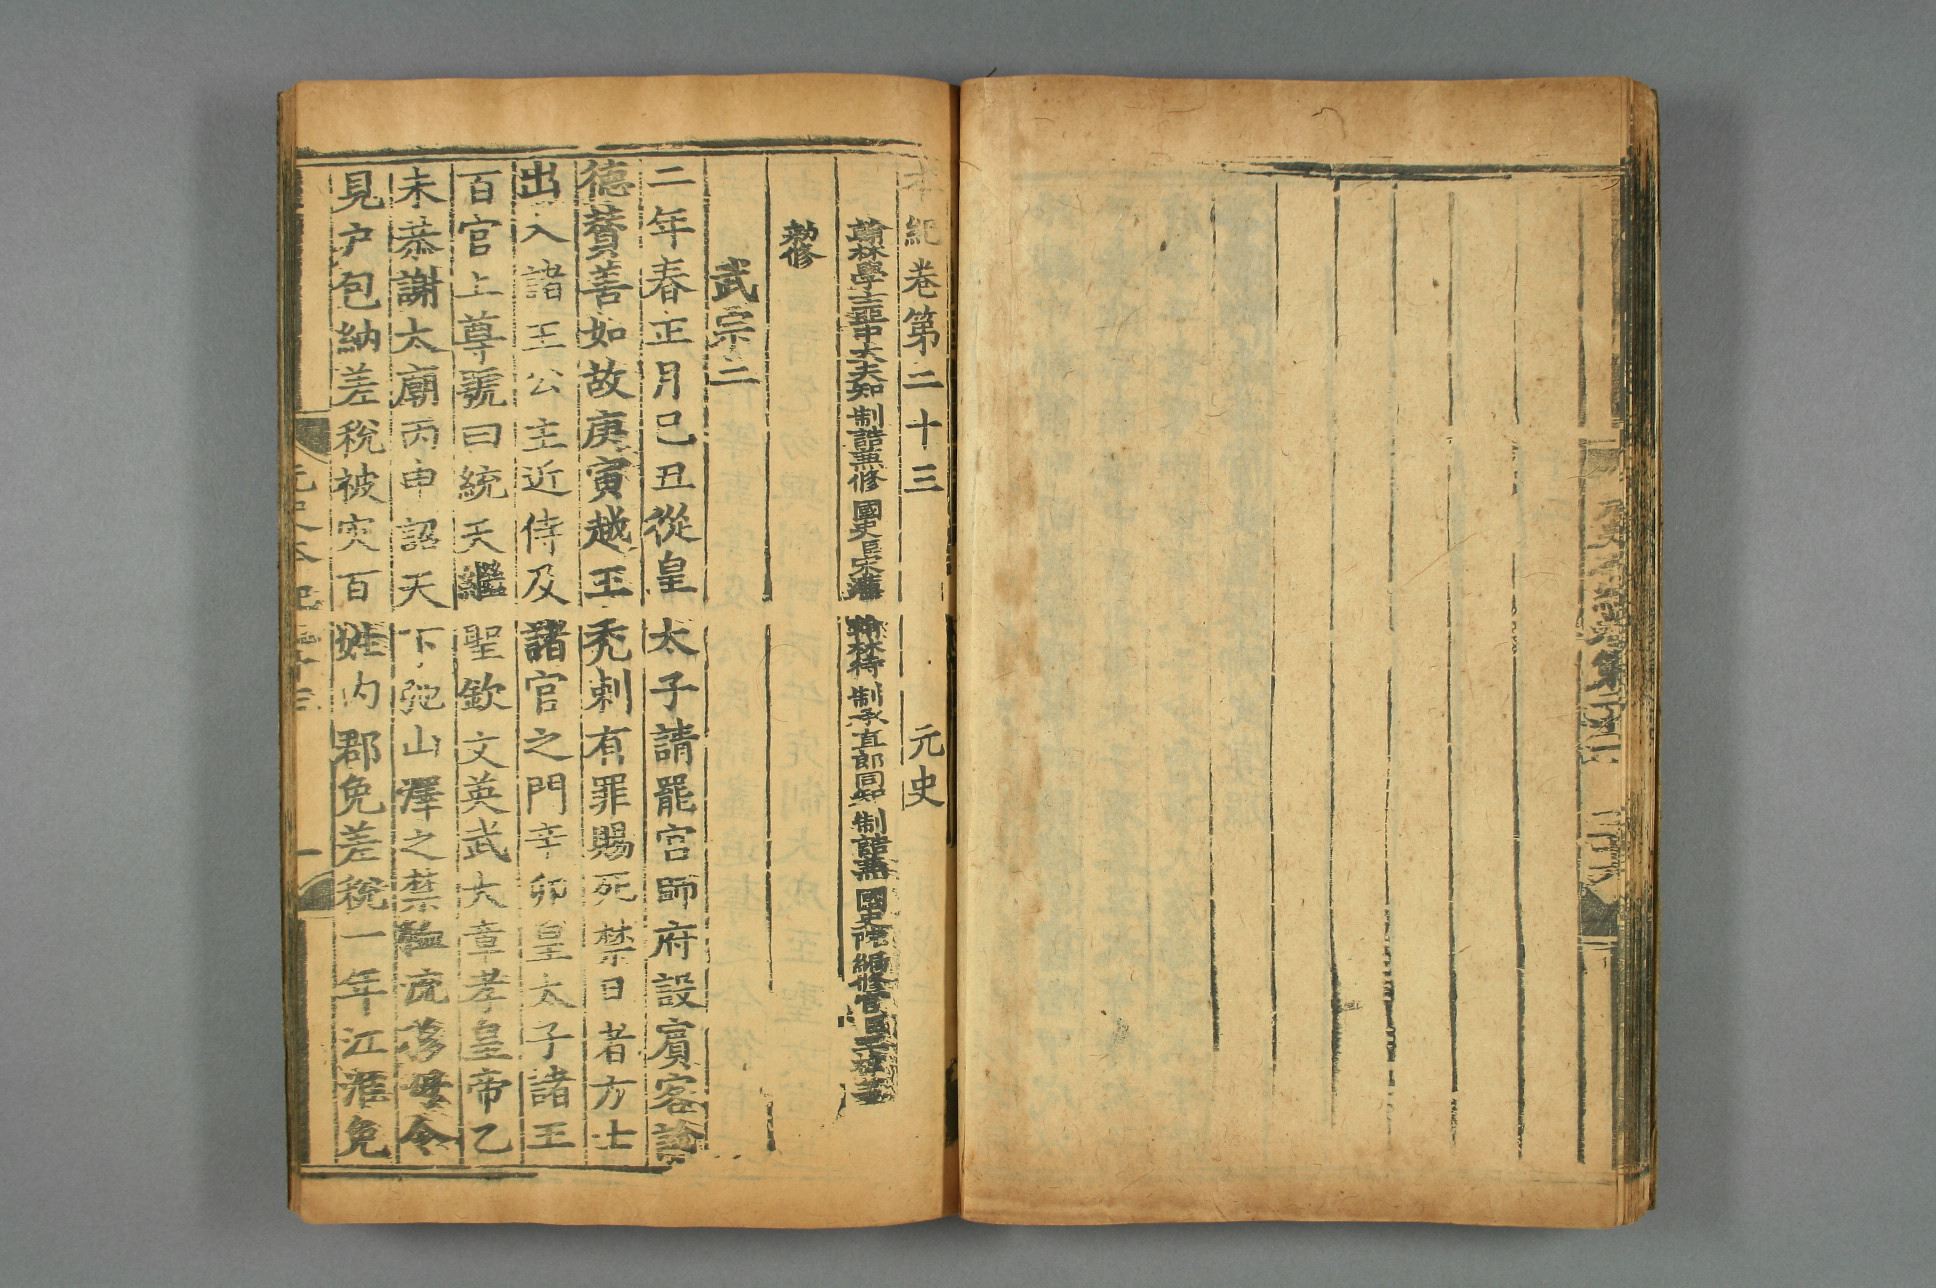 元史本紀卷第二十二
二十六
本紀卷第二十三　元史
翰林學士亞中大夫知 制誥兼修 國史臣宋濂 翰林待 制承直郎同知 制誥兼 國史院編修官臣王禕等
勑修
武宗二
二年春正月己丑從皇太子請罷宮師府設賓客諭
德贊善如故庚寅越王禿剌有罪賜死禁日者方士
出入諸王公主近侍及諸官之門辛卯皇太子諸王
百官上尊號曰統天繼聖欽文英武大章孝皇帝乙
未恭謝太廟丙申詔天下弛山澤之禁恤流移毋令
見户包納差稅被災百姓内郡免差稅一年江淮免
元史本紀卷二十三
一